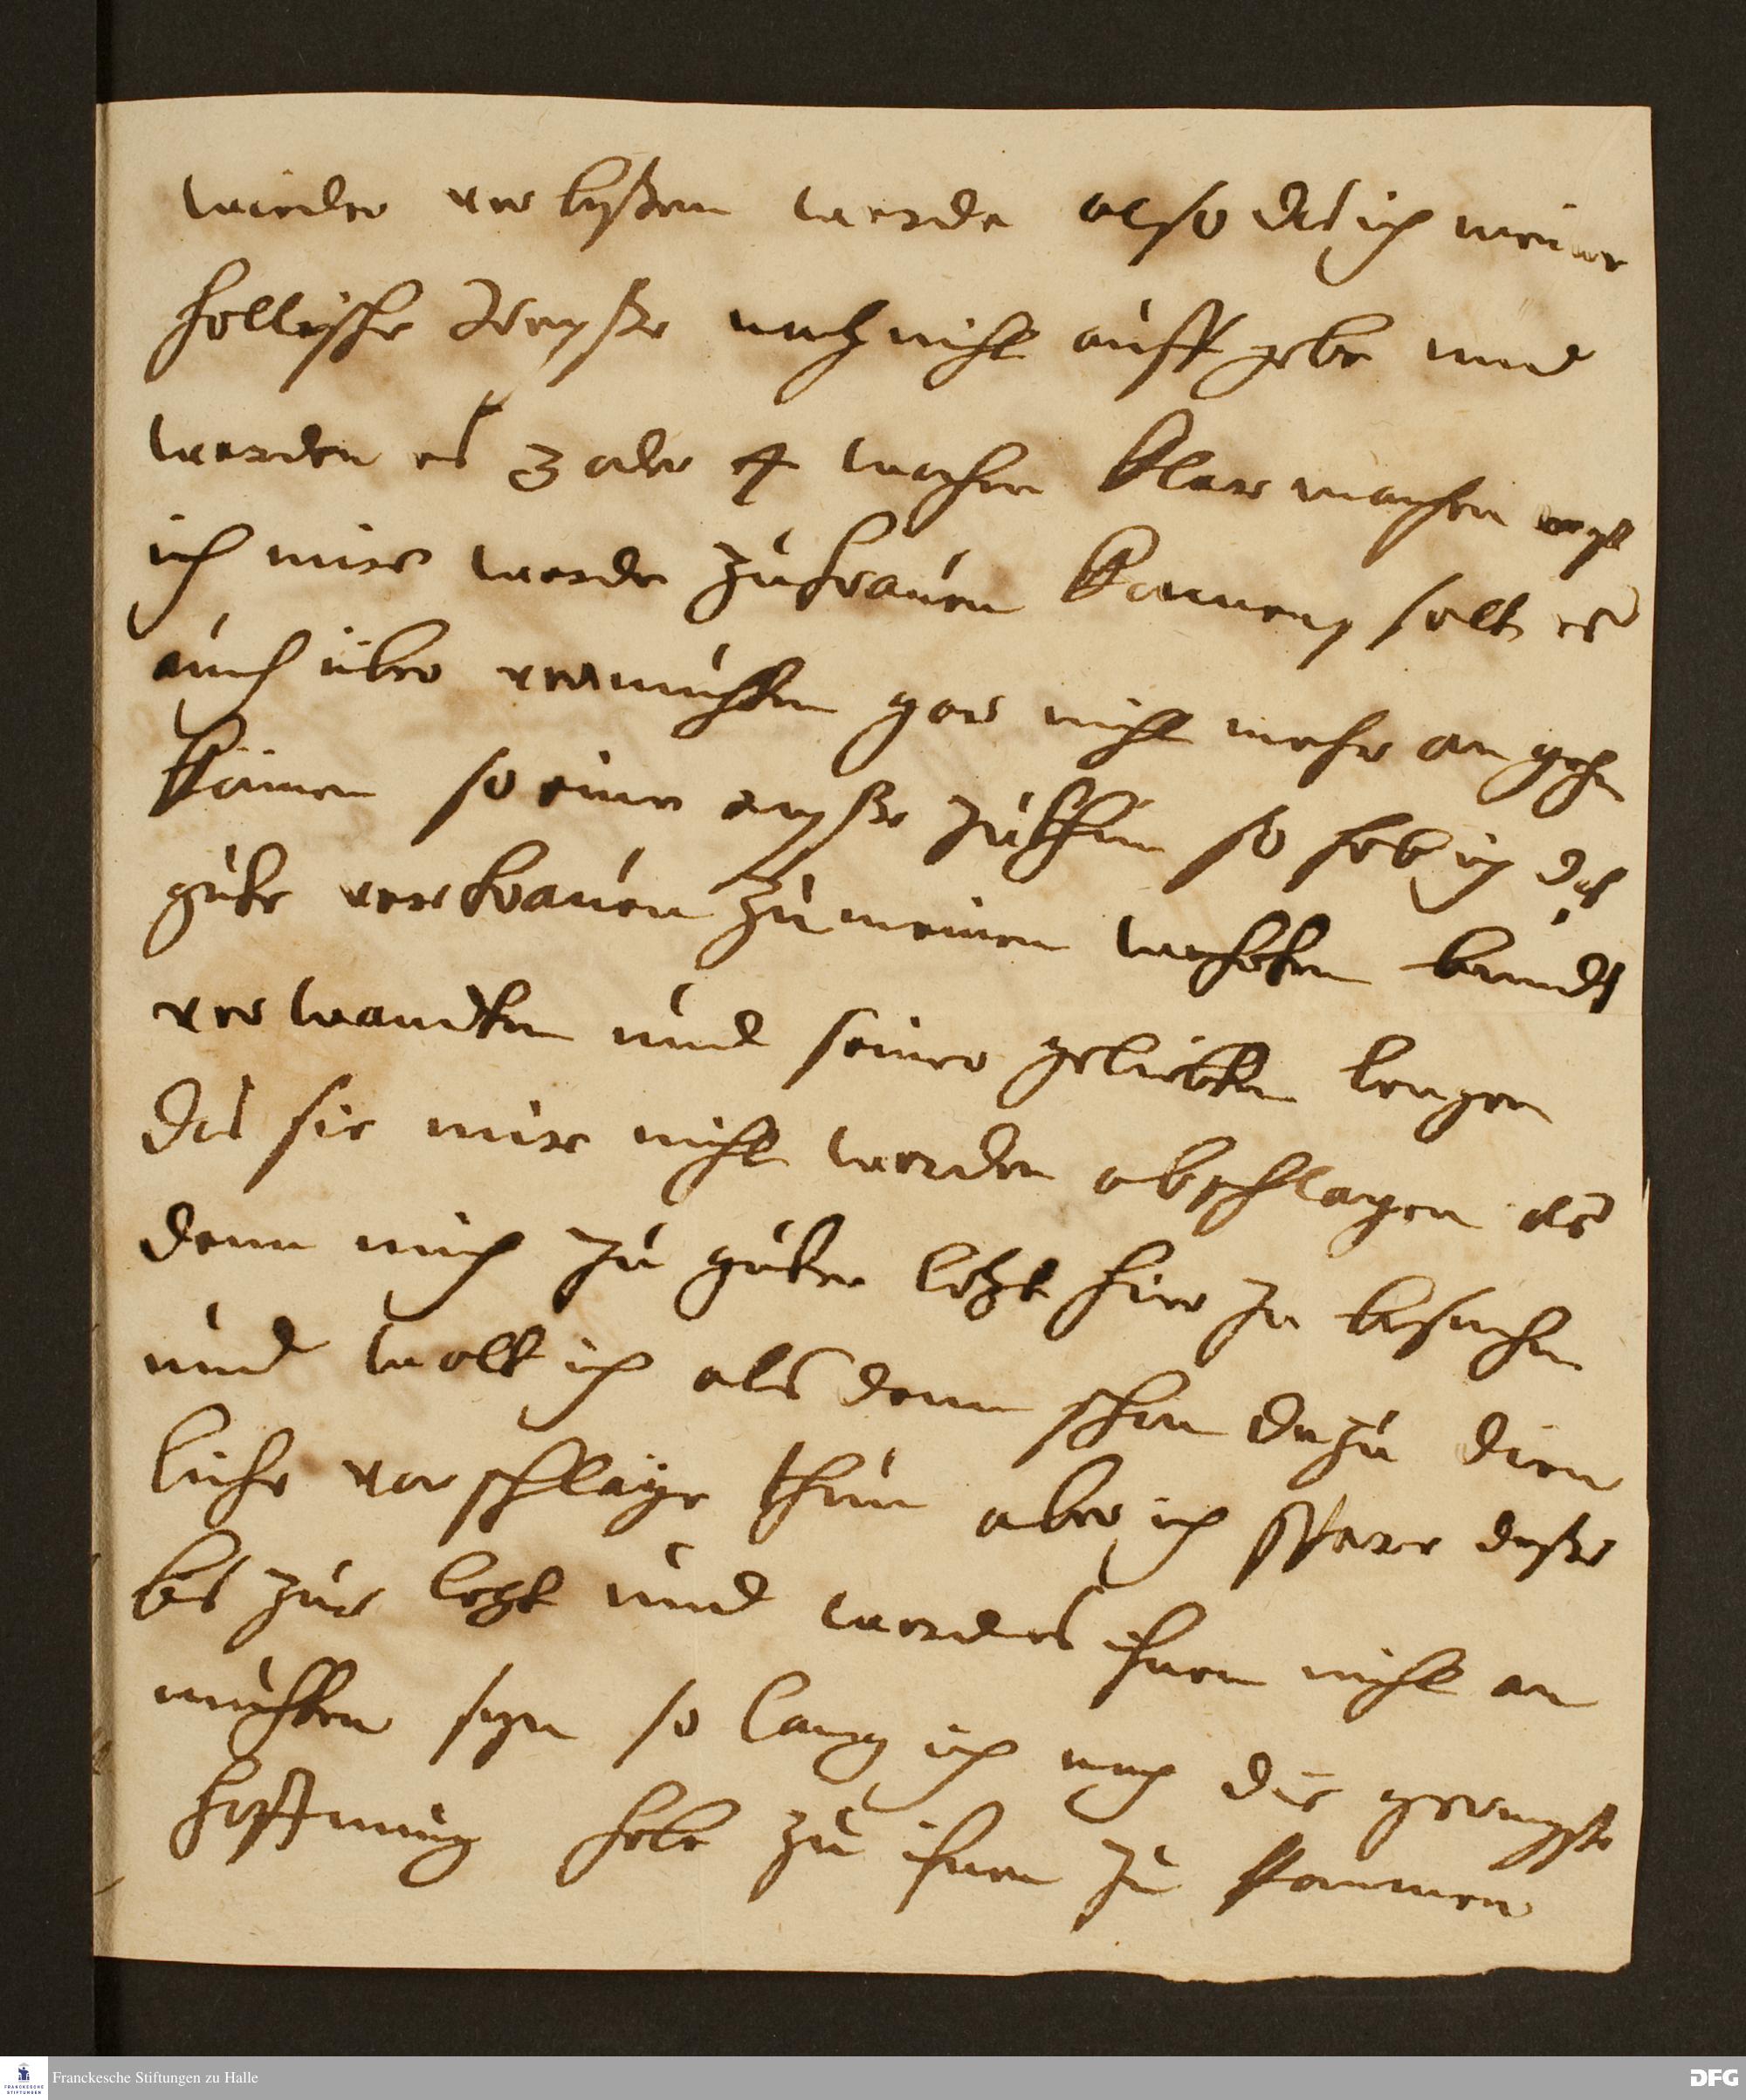 wieder verlyßen werde also das ich meine
hallische Reyße noch nicht auff gebe und
werden es 3 oder 4 wochen klar machen was
ich mir werde zutrauen können solt es
auch über vermuhten gar nicht mehr an gehn
können so eine reyße zuthun so hab ich das
gute vertrauen zu meinen wehrten bunds
verwandten und seiner geliebten
das sie mir nicht werden abschlagen als
denn mich zu guter letzt hier zu besuchen
und wolt ich als denn schon dazu dien
liche vorschläge thun aber ich spare dieße
bis zur letzt und werde es ihnen nicht an
muhten seyn so lang ich noch die geringste
hoffnung habe zu ihnen zu kommen
Franckesche Stiftungen zu Halle
FRANCKESCHE
STIFTUNGEN
DFG